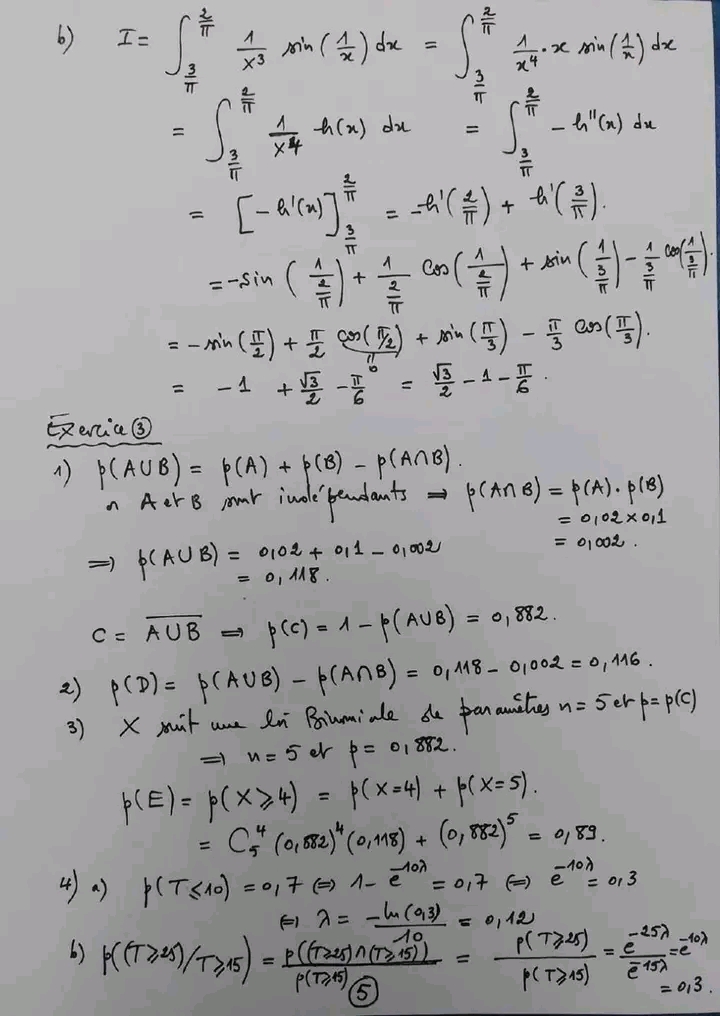 b) I = ∫_{3/π}^{2/π} 1/x³ sin(1/x) dx = ∫_{3/π}^{2/π} 1/x⁴ · x sin(1/x) dx
= ∫_{3/π}^{2/π} 1/x⁴ h(x) dx = ∫_{3/π}^{2/π} - h''(x) dx
= [- h'(x)]_{3/π}^{2/π} = -h'(2/π) + h'(3/π).
= -sin(1/(2/π)) + 1/(2/π) cos(1/(2/π)) + sin(1/(3/π)) - 1/(3/π) cos(1/(3/π)).
= - sin(π/2) + π/2 cos(π/2) + sin(π/3) - π/3 cos(π/3).
= -1 + √3/2 - π/6 = √3/2 - 1 - π/6.
Exercice ③
1) p(A∪B) = p(A) + p(B) - p(A∩B).
A et B sont indépendants ⟹ p(A∩B) = p(A). p(B)
= 0,02 × 0,1
⟹ p(A∪B) = 0,02 + 0,1 - 0,002 = 0,002.
= 0,118.
C = \overline{A∪B} ⟹ p(C) = 1 - p(A∪B) = 0,882.
2) p(D) = p(A∪B) - p(A∩B) = 0,118 - 0,002 = 0,116.
3) X suit une loi Binomiale de paramètres n = 5 et p = p(C)
⟹ n = 5 et p = 0,882.
p(E) = p(X ⩾ 4) = p(X=4) + p(X=5).
= C₅⁴ (0,882)⁴ (0,118) + (0,882)⁵ = 0,89.
4) a) p(T ⩽ 10) = 0,7 ⟺ 1 - e^{-10λ} = 0,7 ⟺ e^{-10λ} = 0,3
⟺ λ = -ln(0,3)/10 = 0,12
b) p((T⩾25)/T⩾15) = p((T⩾25)∩(T⩾15))/p(T⩾15) = p(T⩾25)/p(T⩾15) = e^{-25λ}/e^{-15λ} = e^{-10λ}
= 0,3.
⑤